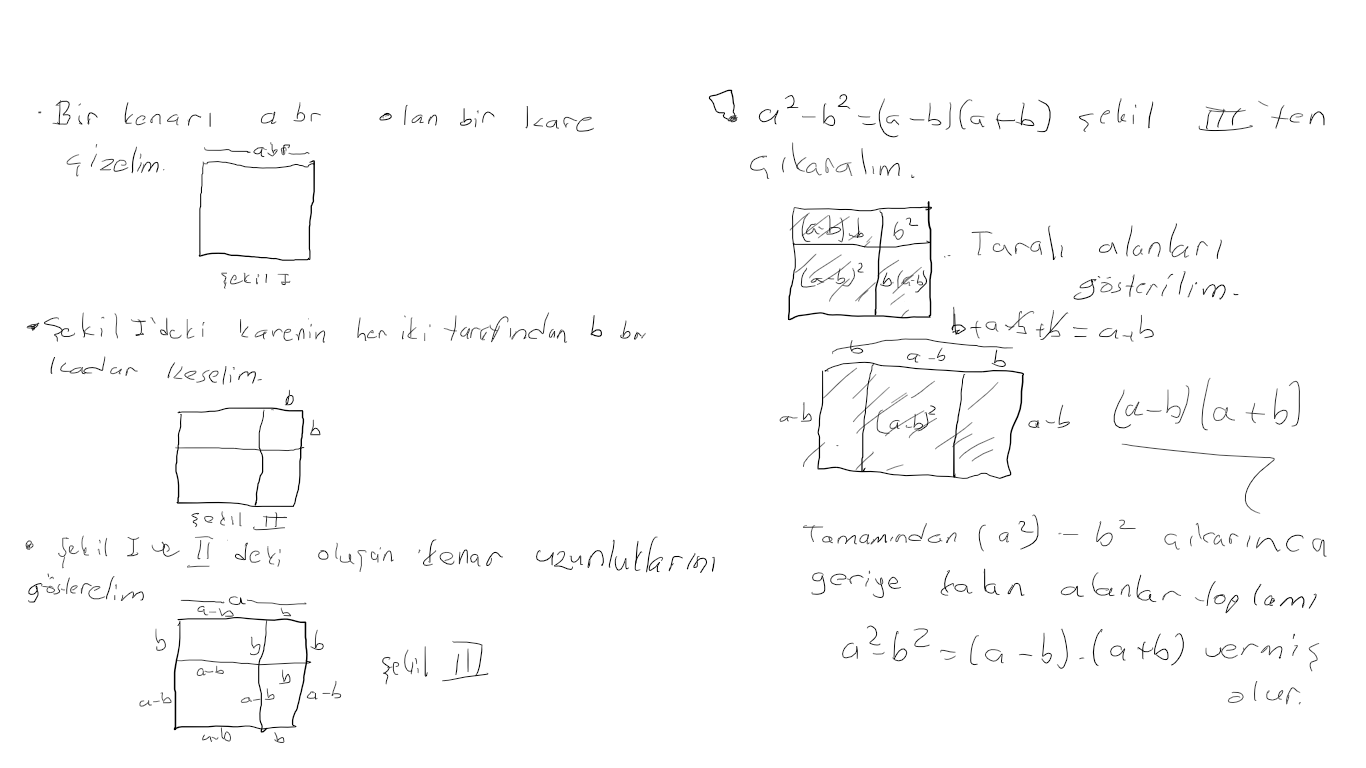 · Bir kenarı a br olan bir kare
çizelim.
abr
Şekil I
• Şekil I'deki karenin her iki tarafından b br
kadar keselim.
b
b
Şekil II
• Şekil I ve II deki oluşan kenar uzunluklarını
gösterelim
a
a-b b
b b b
a-b b
a-b a-b a-b
a-b b
Şekil III
a²-b²=(a-b)(a+b) şekil III'ten
çıkaralım.
(a-b).b b²
(a-b)² b(a-b)
Taralı alanları
gösterilim.
b+a-b+b = a+b
b a-b b
a-b (a-b)² a-b
(a-b)(a+b)
Tamamından (a²) - b² çıkarınca
geriye kalan alanlar toplamı
a²-b²=(a-b).(a+b) vermiş
olur.